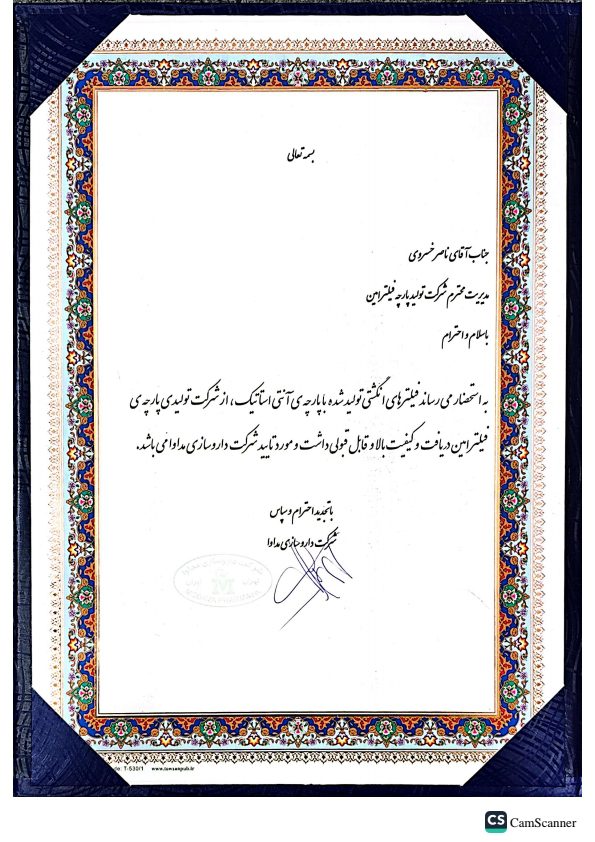 بسمه تعالی
جناب آقای ناصر خسروی
مدیریت محترم شرکت تولید پارچه فیلتر امین
باسلام و احترام
به استحضار می رساند فیلترهای انگشتی تولید شده با پارچه ی آنتی استاتیک ، از شرکت تولیدی پارچه ی
فیلتر امین دریافت و کیفیت بالا و قابل قبولی داشت و مورد تایید شرکت داروسازی مداوا می باشد.
با تجدید احترام و سپاس
شرکت داروسازی مداوا
de: T-530/1 www.tavsanpub.ir
CS CamScanner